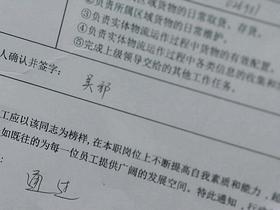 区域货物的日常取货、存货。
②负责所属区域货物的日常维护。
③负责实体物流运作过程中货物的有效配置。
④负责实体物流运作过程中各类信息的收集和
⑤完成上级领导交给的其他工作任务。
人确认并签字:
吴邪
工应以该同志为榜样,在本职岗位上不断提高自我素质和能力,
如既往的为每一位员工提供广阔的发展空间。特此通知,
通过